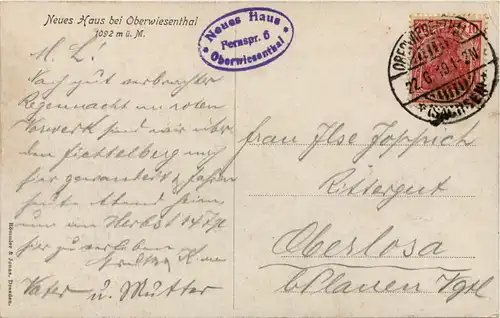 Neues Haus bei Oberwiesenthal
1092 m ü. M.
Neues Haus
Fernspr. 6
Oberwiesenthal
M. L!
Nach gut verbrachter
Regennacht im roten
Vorwerk sind wir über
den Fichtelberg
hier gewandert & fahren
heute Abend heim,
um im Herbst 14 Tge
hier zu verleben
Vater u. Mutter
Frau Ilse Joppich
Rittergut
Oberlosa
b Plauen Vgtl
Römmler & Jonas, Dresden.